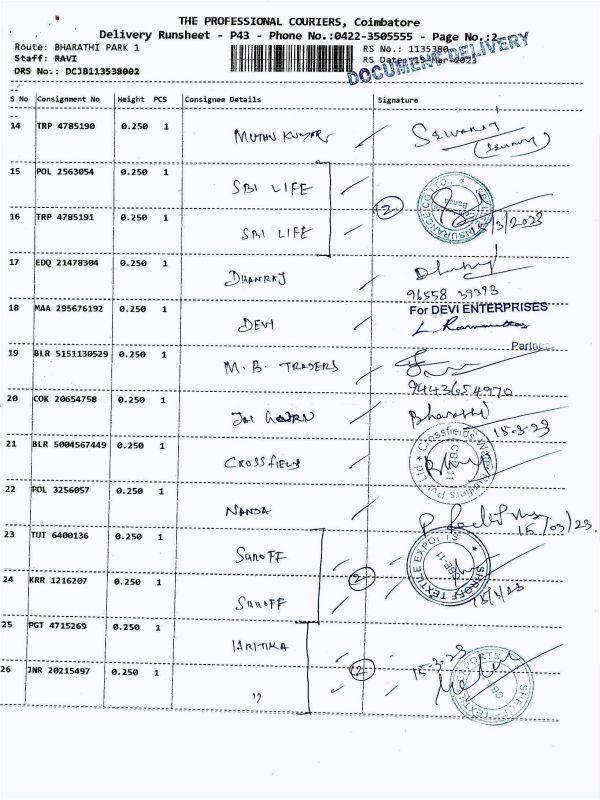 THE PROFESSIONAL COURIERS, Coimbatore
Delivery Runsheet - P43 - Phone No.:0422-3505555 - Page No.:2
Route: BHARATHI PARK 1
RS No.: 1135380
Staff: RAVI
RS Date: 15-Mar-2023
DRS No.: DCJ8113538002
DOCUMENT DELIVERY
S No Consignment No Weight PCS Consignee Details Signature
14 TRP 4785190 0.250 1 MUTHU KUMAR
15 POL 2563054 0.250 1 SBI LIFE
2
16 TRP 4785191 0.250 1 SBI LIFE
15/3/2023
17 EDQ 21478304 0.250 1 DHANRAJ
96558 39393
18 MAA 295676192 0.250 1 DEVI
For DEVI ENTERPRISES
Partner
19 BLR 5151130529 0.250 1 M.B. TRADERS
9443654970
20 COK 20654758 0.250 1 Bharathi
15-3-23
21 BLR 5004567449 0.250 1 CROSSFIELD
22 POL 3256057 0.250 1 NANDA
15/03/23.
23 TUT 6400136 0.250 1 SHROFF
SHROFF TEXTILE EXPORTS
2
24 KRR 1216207 0.250 1 SHROFF
15/3/23
25 PGT 4715269 0.250 1 HARITIKA
2
15-3-23
26 JNR 20215497 0.250 1 "